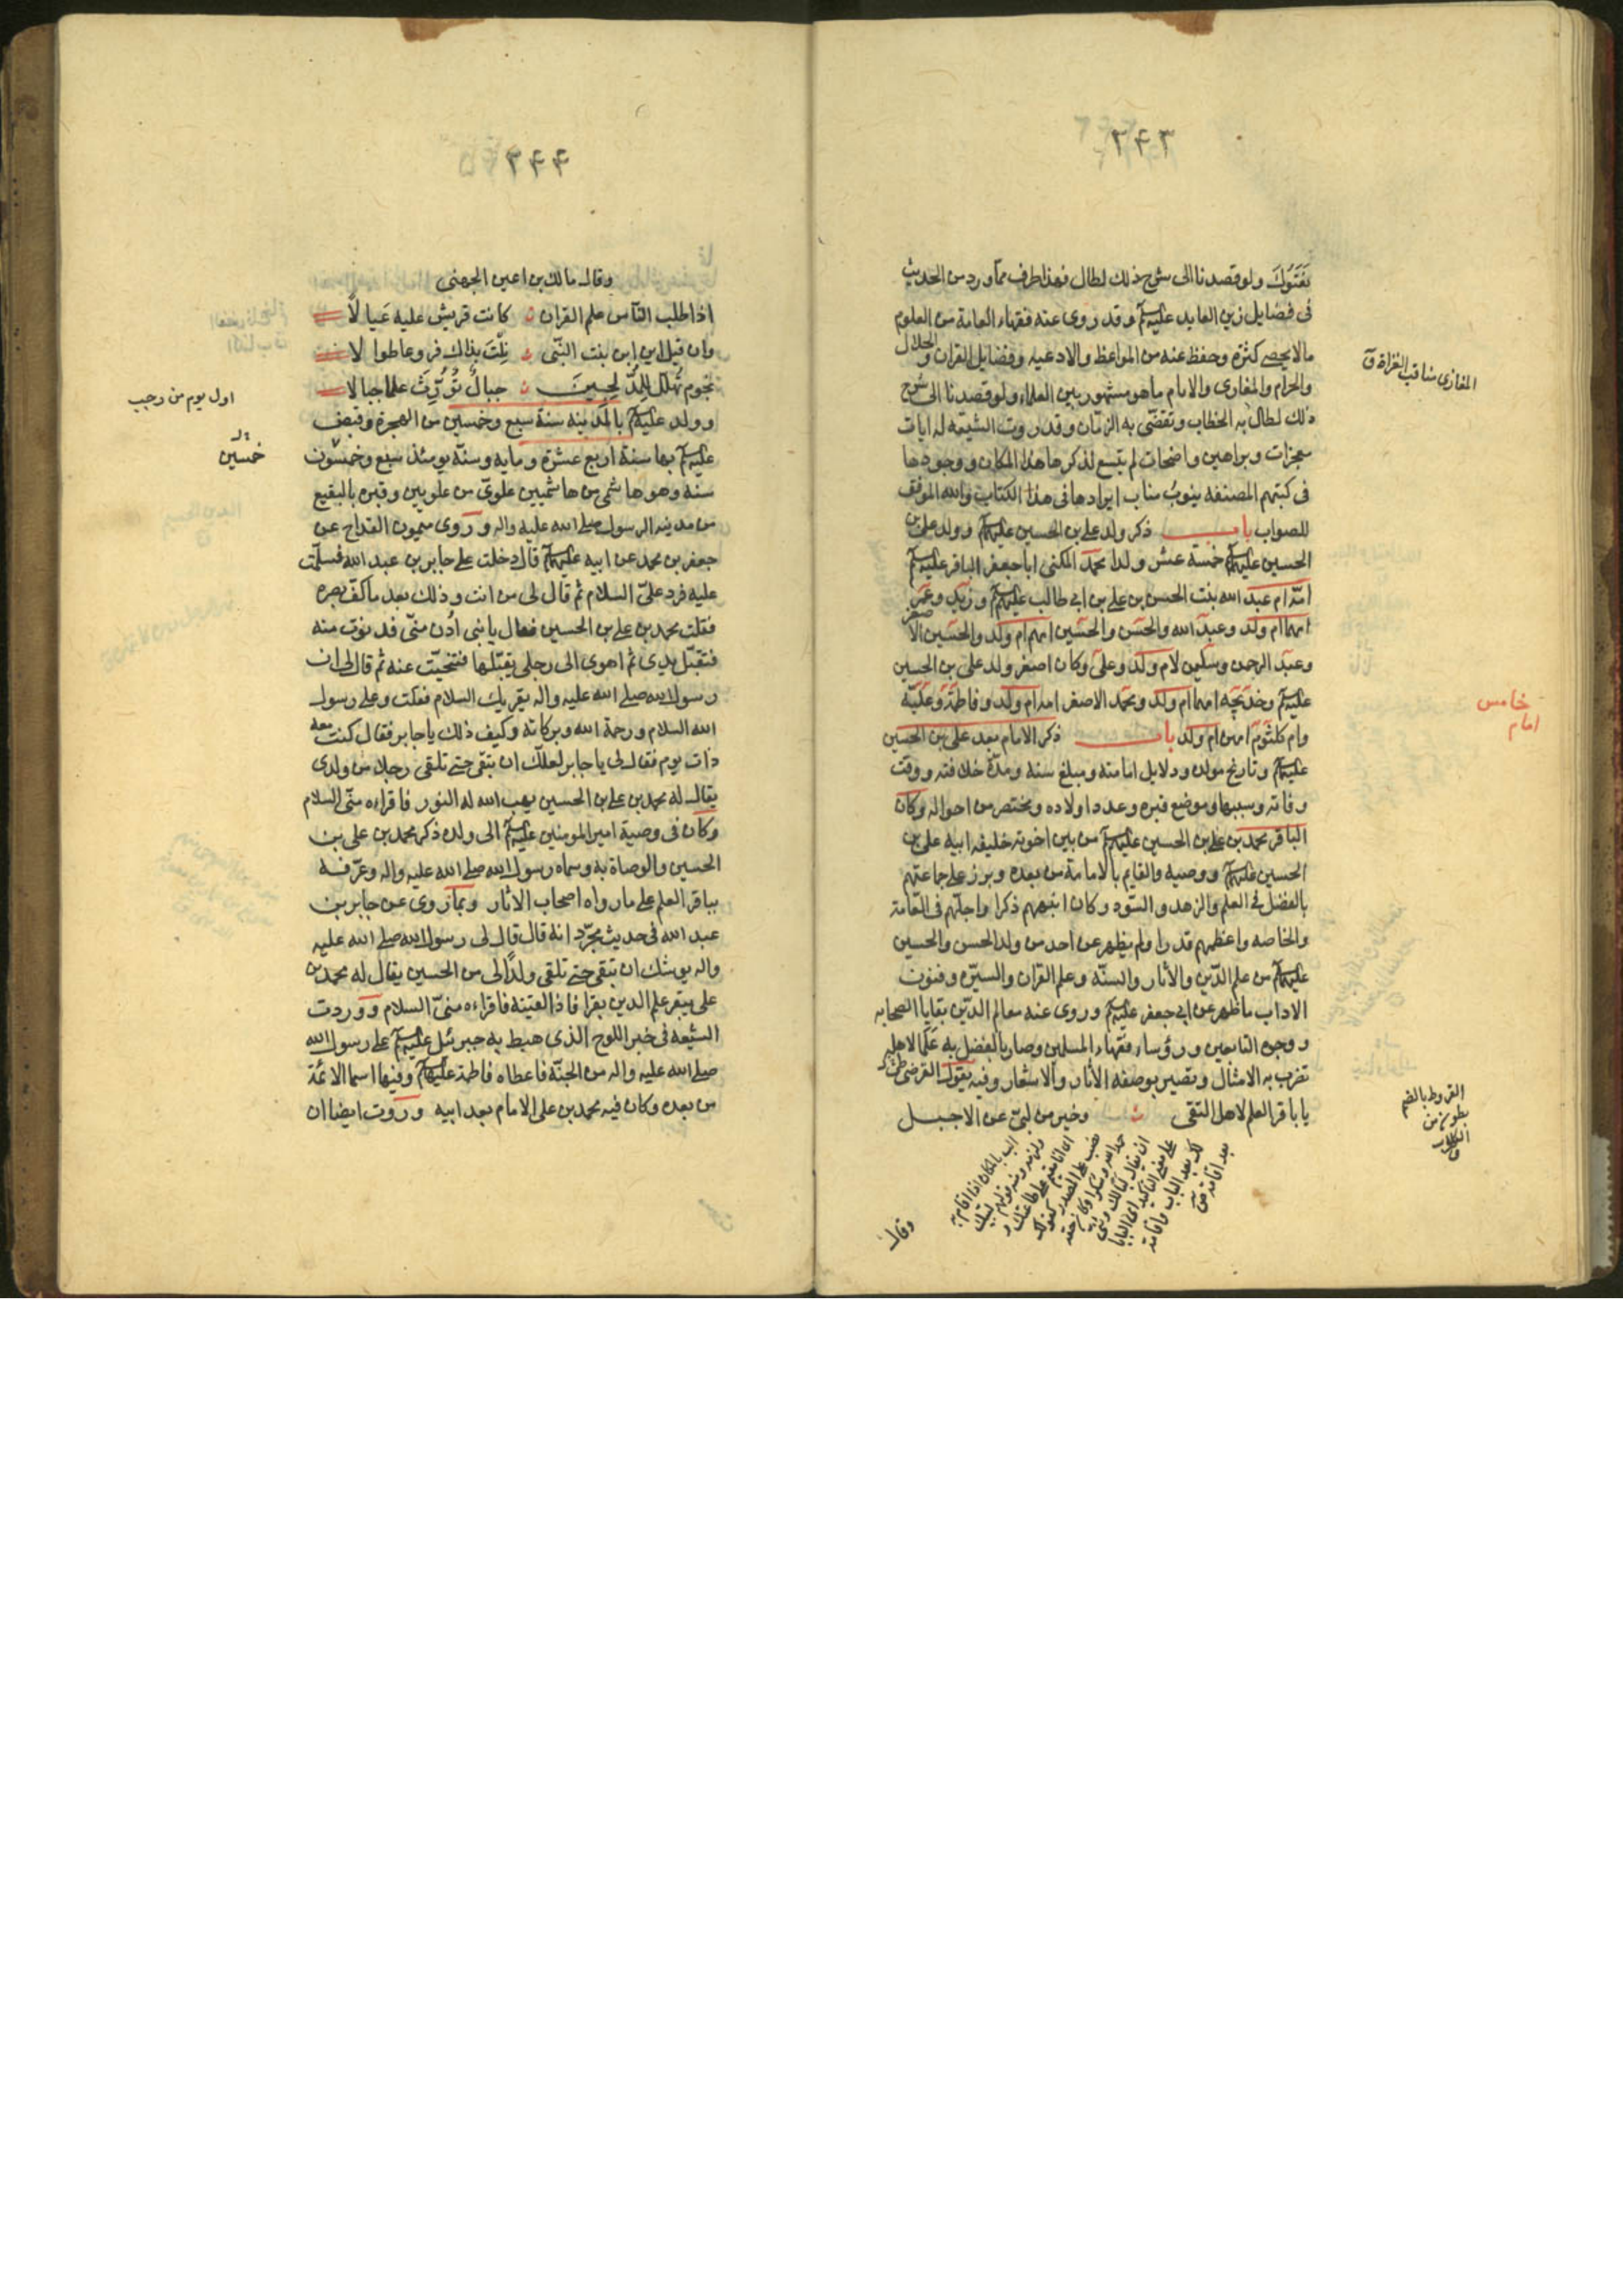 ٣٤٣
يفتنوك ولو قصدنا الى شرح ذلك لطال فهذا طرف مما ورد من الحديث
فى فضايل زين العابدين عليه السلم و قد روى عنه فقهاء العامة من العلوم
ما لا يحصى كثرة وحفظ عنه من المواعظ والادعيه وفضايل القران والحلال
والحرام والمغازى والايام ما هو مشهور بين العلماء ولو قصدنا الى شرح
ذلك لطال به الخطاب وتقضّى به الزمان وقد روت الشيعه له ايات
معجزات وبراهين واضحات لم يتسع لذكرها هذا المكان و وجودها
فى كتبهم المصنفه ينوب مناب ايرادها فى هذا الكتاب والله الموفق
للصواب باب ذكر ولد على بن الحسين عليهما السلم و ولد على بن
الحسين عليهما السلم خمسة عشر ولدا محمد المكنى ابا جعفر الباقر عليه السلم
امّه ام عبد الله بنت الحسن بن على بن ابى طالب عليهم السلم و زيد وعمر
امهما ام ولد وعبد الله والحسن والحسين امهم ام ولد والحسين الاصغر
وعبد الرحمن وسليمن لام ولد وعلى وكان اصغر ولد على بن الحسين
عليهما السلم وخديجه امهما ام ولد ومحمد الاصغر امه ام ولد وفاطمة وعليّة
وام كلثوم امهن ام ولد باب ذكر الامام بعد على بن الحسين
عليهما السلم وتاريخ مولده ودلايل امامته ومبلغ سنه ومدة خلافته ووقت
وفاته وسببها وموضع قبره وعدد اولاده ومختصر من احواله وكان
الباقر محمد بن على بن الحسين عليهم السلم من بين اخوته خليفه ابيه على بن
الحسين عليهما السلم ووصيه والقايم بالامامة من بعده وبرز على جماعتهم
بالفضل فى العلم والزهد والسّودد وكان انبههم ذكرا واجلّهم فى العامّة
والخاصه واعظمهم قدرا ولم يظهر عن احد من ولد الحسن والحسين
عليهما السلم من علم الدّين والأثار والسنّه وعلم القران والسيّره وفنون
الاداب ما ظهر عن ابى جعفر عليه السلم وروى عنه معالم الدّين بقايا الصحابه
و وجوه التابعين و رؤساء فقهاء المسلمين وصار بالفضل به علما لاهله
تضرب به الامثال وتصير بوصفه الأثار والاشعار وفيه يقول القرظى
يا باقر العلم لاهل التقى وخير من لبىّ عن الاجبل
المغازى مناقب الغزاة ق
خامس
امام
وقال
٣٤٤
وقال مالك بن اعين الجهنى
اذا طلب النّاس علم القران كانت قريش عليه عيالا
وان قيل اين ابن بنت النّبى نلت بذاك فروعا طوالا
نجوم تهلّل للمدلجين جبال تورّث علما جبالا
وولد عليه السلم بالمدينه سنة سبع وخمسين من الهجرة وقبض
عليه السلم بها سنة اربع عشرة ومايه وسنّه يومئذ سبع وخمسون
سنه وهو هاشمى من هاشميين علوىّ من علويين وقبره بالبقيع
من مدينه الرسول صلى الله عليه واله وروى ميمون القداح عن
جعفر بن محمد عن ابيه عليهما السلم قال دخلت على جابر بن عبد الله فسلّمت
عليه فرد علىّ السلام ثم قال لى من انت وذلك بعد ما كفّ بصره
فقلت محمد بن على بن الحسين فقال يا بنى ادن منّى فدنوت منه
فتقبّل يدى ثم اهوى الى رجلى يقبّلها فتنحيّت عنه ثم قال لى ان
رسول الله صلى الله عليه واله يقريك السلام فقلت وعلى رسول
الله السلام ورحمة الله وبركاته وكيف ذلك يا جابر فقال كنت معه
ذات يوم فقال لى يا جابر لعلّك ان تبقى حتى تلقى رجلا من ولدى
يقال له محمد بن على بن الحسين يهب الله له النور فاقراءه منّى السلام
وكان فى وصية امير المومنين عليه السلم الى ولده ذكر محمد بن على بن
الحسين والوصاة به وسماه رسول الله صلى الله عليه واله وعرّفه
بباقر العلم على ما رواه اصحاب الاثار وبما روى عن جابر بن
عبد الله فى حديث مجرّد انه قال قال لى رسول الله صلى الله عليه
واله يوشك ان تبقى حتى تلقى ولدًا لى من الحسين يقال له محمد بن
على يبقر علم الدين بقرا فاذا لقيته فاقراءه منىّ السلام ووردت
الشيعه فى خبر اللوح الذى هبط به جبرئيل عليه السلم على رسول الله
صلى الله عليه واله من الجنّة فاعطاه فاطمة عليها السلم وفيها اسما الائمّة
من بعده وكان فيه محمد بن على الامام بعد ابيه وروت ايضا ان
اول يوم من رجب
خمسين